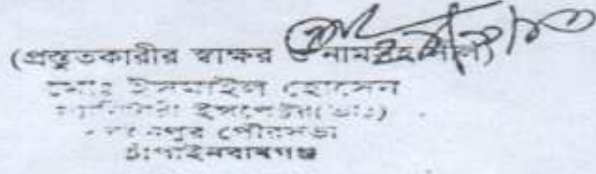 (প্রস্তুতকারীর স্বাক্ষর ও নামসহ সীল)
মোঃ ইসমাইল হোসেন
ইন্সপেক্টর(ভাঃ)
পৌরসভা
চাঁপাইনবাবগঞ্জ